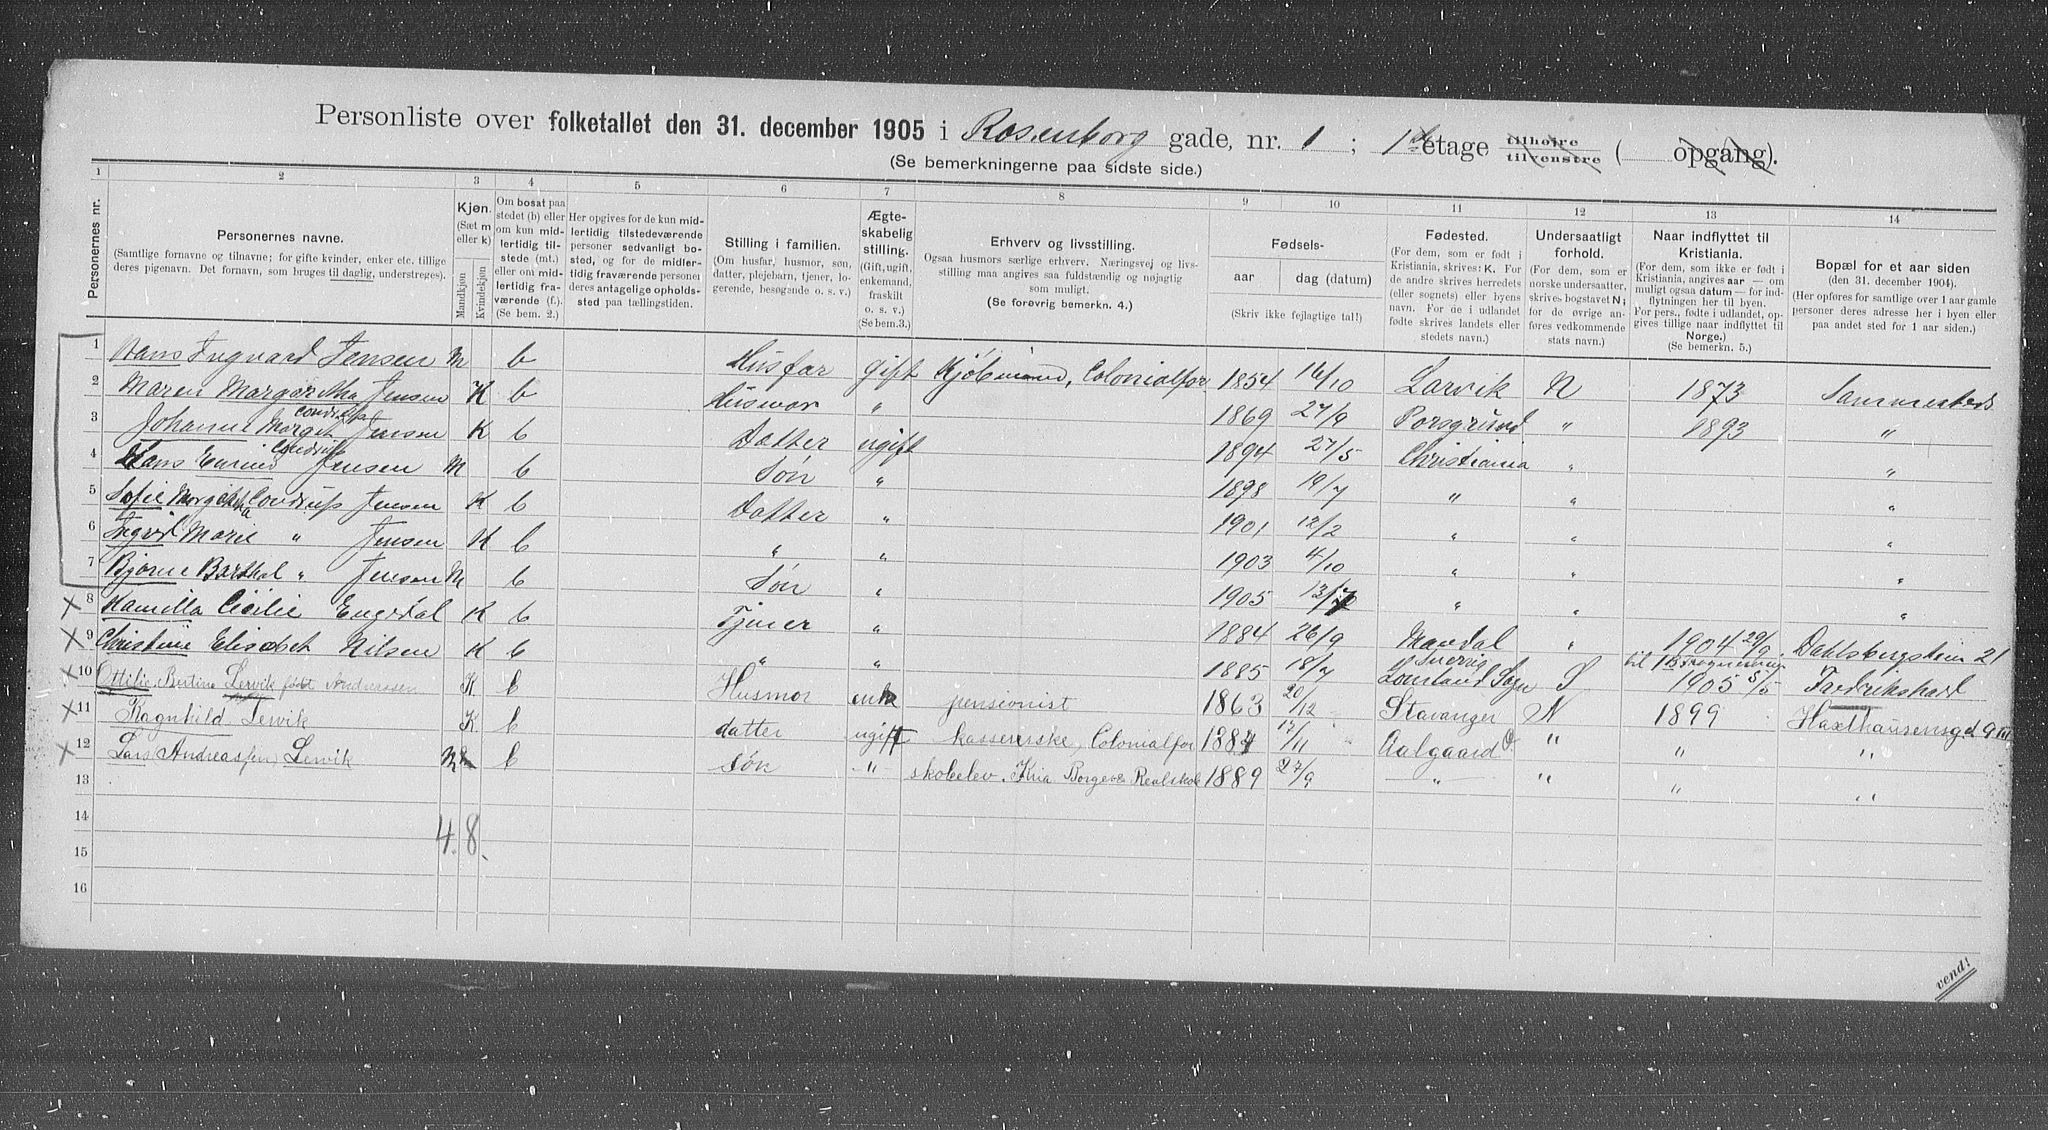 Personliste over folketallet den 31. december 1905 i Rosenborg gade, nr. 1 ; 1ste etage tilhøire tilvenstre ( opgang).
(Se bemerkningerne paa sidste side.)
1 2 3 4 5 6 7 8 9 10 11 12 13 14
Personernes nr.
Personernes navne.
(Samtlige fornavne og tilnavne; for gifte kvinder, enker etc. tillige
deres pigenavn. Det fornavn, som bruges til daglig, understreges).
Kjøn.
(Sæt m
eller k)
Mandkjøn
Kvindekjøn
Om bosat paa
stedet (b) eller
om kun mid-
lertidig til-
stede (mt.)
eller om mid-
lertidig fra-
værende (f.).
(Se bem. 2.)
Her opgives for de kun mid-
lertidig tilstedeværende
personer sedvanlig bo-
sted, og for de midler-
tidig fraværende personer
deres antagelige opholds-
sted paa tællingstiden.
Stilling i familien.
(Om husfar, husmor, søn,
datter, plejebarn, tjener, lo-
gerende, besøgande o. s. v.)
Ægte-
skabelig
stilling.
(Gift, ugift,
enkemand,
fraskilt
o. s. v.)
(Se bem.3.)
Erhverv og livsstilling.
Ogsaa husmors særlige erhverv. Næringsvej og livs-
stilling maa angives saa fuldstændig og nøjagtig
som muligt.
(Se forøvrig bemerkn. 4.)
Fødsels-
aar dag (datum)
(Skriv ikke fejlagtige tal!)
Fødested.
(For dem, som er født i
Kristiania, skrives: K. For
de andre skrives herredets
(eller sognets) eller byens
navn. For de i udlandet
fødte skrives landets eller
stedets navn.)
Undersaatligt
forhold.
(For dem, som er
norske undersaatter,
skrives bogstavet N;
for de øvrige an-
føres vedkommende
stats navn.)
Naar indflyttet til
Kristiania.
(For dem, som ikke er født i
Kristiania, angives aar — om
muligt ogsaa datum — for ind-
flytningen her til byen.
For pers., fødte i udlandet, op-
gives tillige naar indflyttet til
Norge.)
(Se bemerkn. 5.)
Bopæl for et aar siden
(den 31. december 1904).
(Her opføres for samtlige over 1 aar gamle
personer deres adresse her i byen eller
paa andet sted for 1 aar siden.)
1 Hans Ingvard Jensen M b Husfar gift Kjøbmand, Colonialfor 1854 16/10 Larvik N 1873 Sammesteds
2 Maren Margaretha Jensen K b Husmor " 1869 27/9 Porsgrund " 1893 "
3 Johanne Marget Condrup Jensen K b Datter ugift 1894 27/5 Christiania " "
4 Hans Condrup Jensen M b Søn " 1898 19/7 " " "
5 Sofie Margretha Condrup Jensen K b Datter " 1901 12/2 " " "
6 Ingrid Marie " Jensen K b " " 1903 4/10 " " "
7 Bjørne Barthol " Jensen M b Søn " 1905 13/7 " " "
8 Kamilla Cicilie Engedal K b Tjener " 1884 26/9 Mandal " 1904 29/9 Dahlsbergstien 21
9 Christine Elisabet Nilsen K b " " 1885 18/7 Sverig S til 1905 5/5 Fredrikshald
10 Ottilie, Bertine Lervik født Andreassen K. b Husmor enke pensionist 1863 20/12 Stavanger N 1899 Haxthausensgd 9 III
11 Ragnhild Lervik K. b datter ugift kassererske, Colonialfor 1887 17/11 Aalgaard " " "
12 Lars Andreassen Lervik M b søn " skoleelev. Kria Borger Realskole 1889 27/9 " " " "
13
14
4. 8.
15
16
vend!